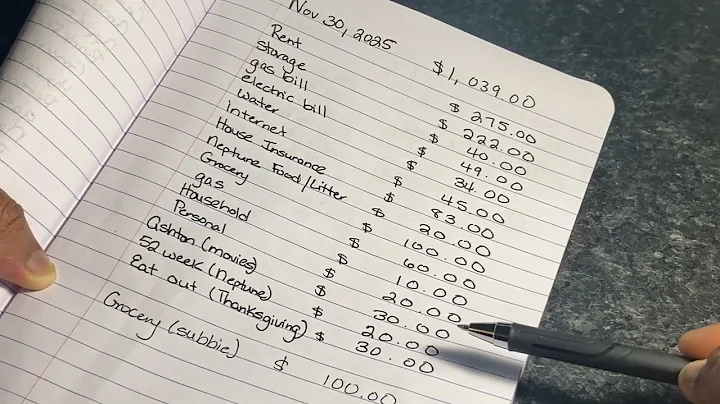 Nov 30, 2025 $1,039.00
Rent $ 275.00
storage $ 222.00
gas bill $ 40.00
electric bill $ 49.00
water $ 34.00
internet $ 45.00
House Insurance $ 83.00
Neptune Food/Litter $ 20.00
Grocery $ 100.00
gas $ 60.00
Household $ 10.00
Personal $ 20.00
Ashton (movies) $ 30.00
52 week (Neptune) $ 20.00
Eat out (Thanksgiving) $ 30.00
Grocery (subbie) $ 100.00